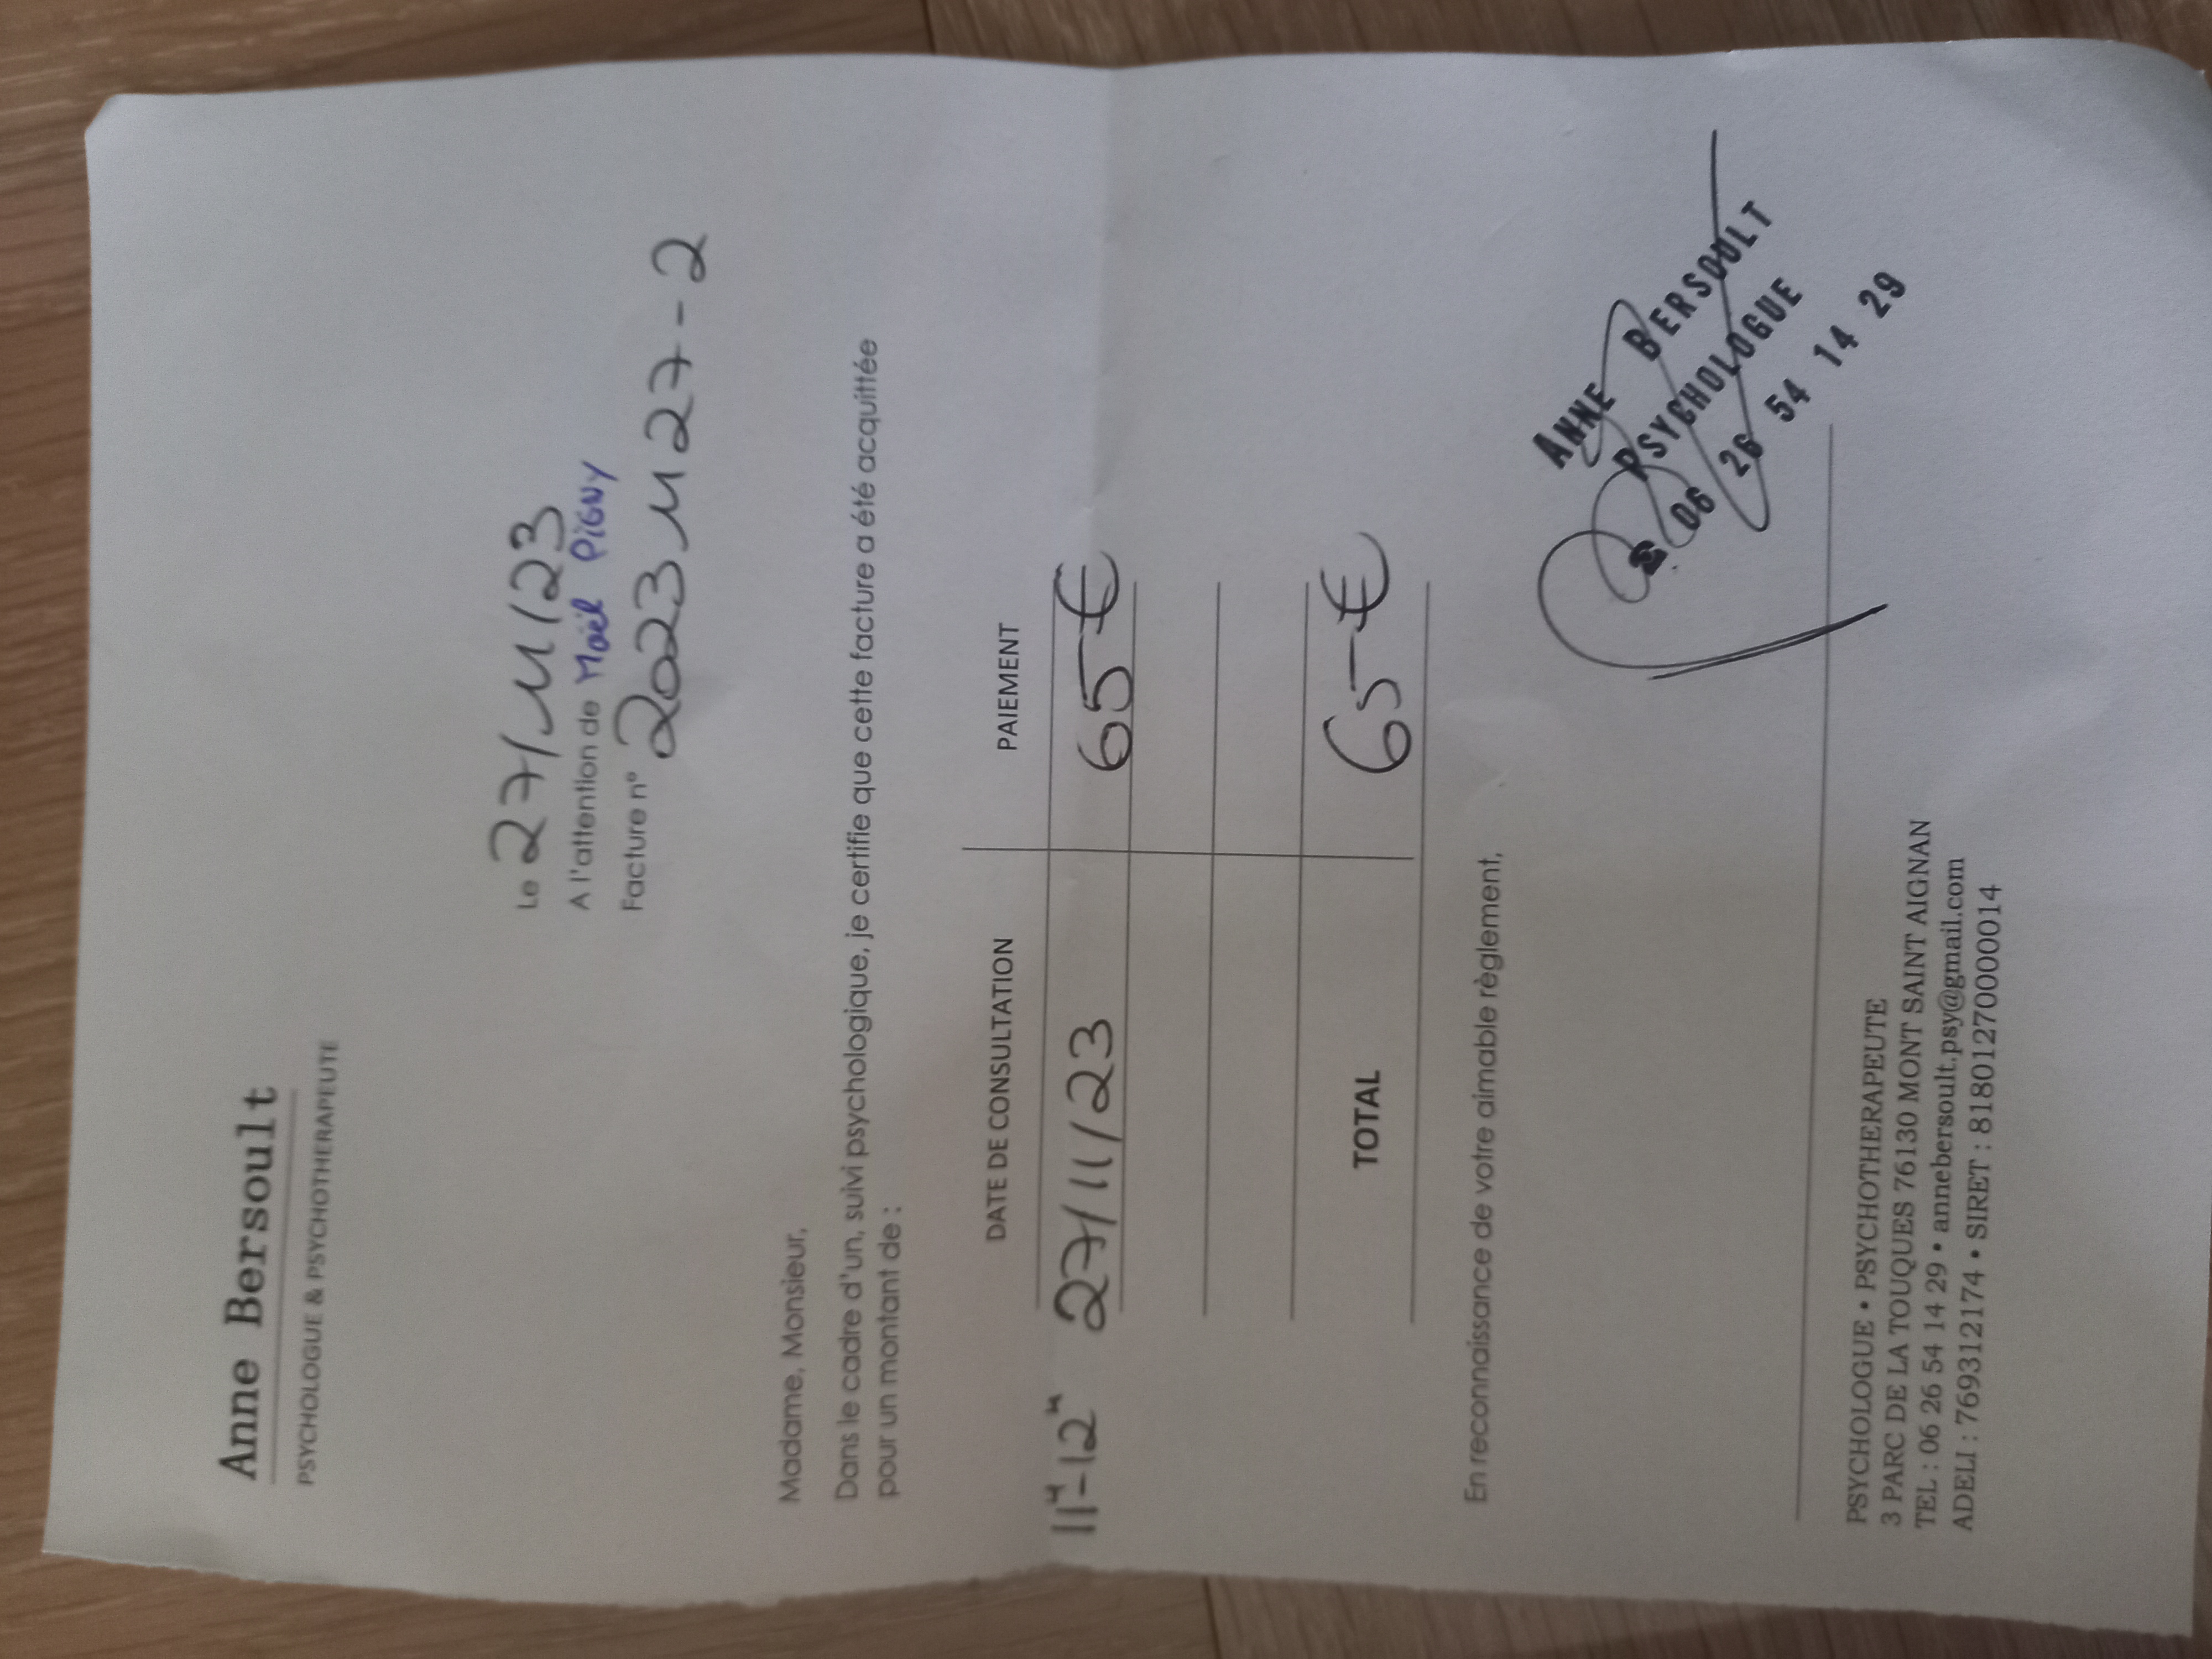 Anne Bersoult
PSYCHOLOGUE & PSYCHOTHERAPEUTE
Le 27/11/23
A l'attention de Maël PIGNY
Facture n° 20231127-2
Madame, Monsieur,
Dans le cadre d'un, suivi psychologique, je certifie que cette facture a été acquittée
pour un montant de :
DATE DE CONSULTATION PAIEMENT
11H-12H 27/11/23 65€
TOTAL 65€
En reconnaissance de votre aimable règlement,
ANNE BERSOULT
PSYCHOLOGUE
☎ 06 26 54 14 29
PSYCHOLOGUE • PSYCHOTHERAPEUTE
3 PARC DE LA TOUQUES 76130 MONT SAINT AIGNAN
TEL : 06 26 54 14 29 • annebersoult.psy@gmail.com
ADELI : 769312174 • SIRET : 81801270000014